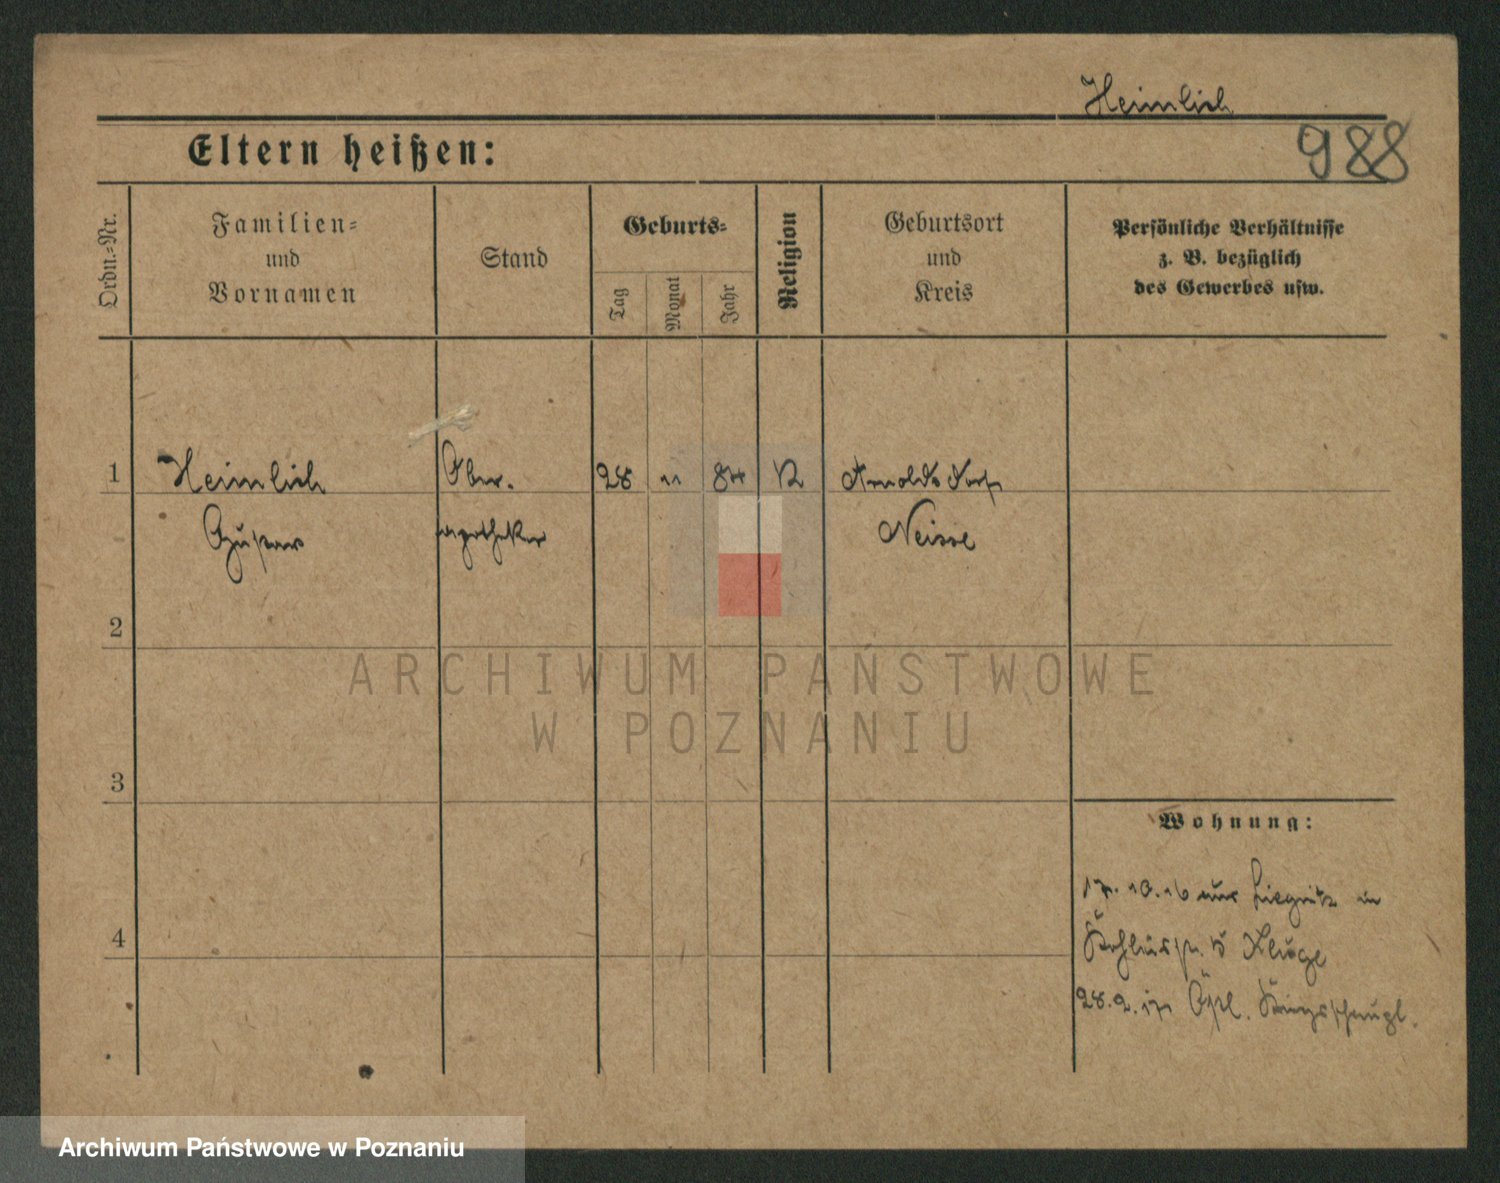 Heimlich
988
Eltern heißen:
Ordn.-Nr.
Familien-
und
Vornamen
Stand
Geburts-
Tag
Monat
Jahr
Religion
Geburtsort
und
Kreis
Persönliche Verhältnisse
z. B. bezüglich
des Gewerbes usw.
1 Heimlich Ober. 28 11 84 K Arnoldsdorf
Gustav apotheker Neisse
2
ARCHIWUM PAŃSTWOWE
W POZNANIU
3
Wohnung:
17. 10. 16 aus Liegnitz in
Kluge
4
28. 2. 17
Archiwum Państwowe w Poznaniu